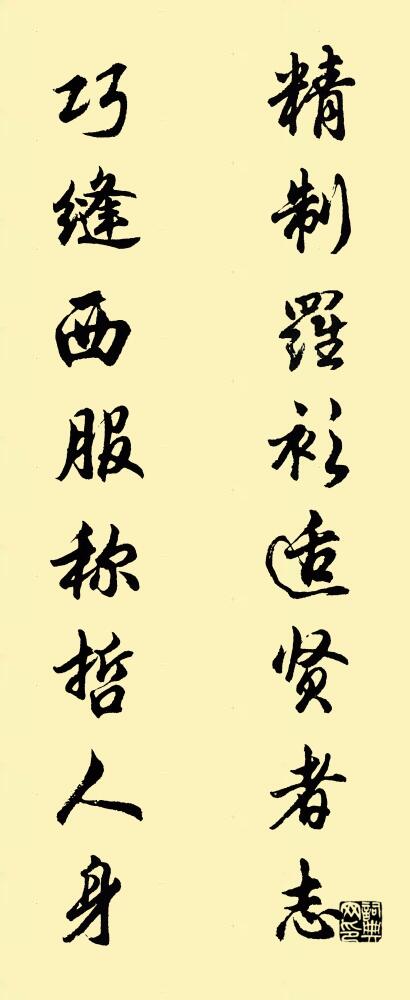 精制羅衫适贤者志
巧缝西服称哲人身
詞典網印